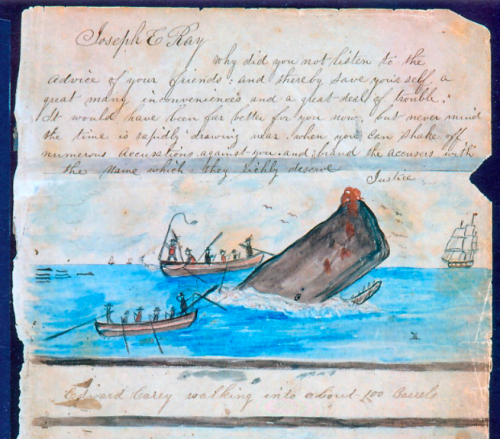 Joseph E Ray
Why did you not listen to the
advice of your friends; and thereby save yourself a
great many inconveniences and a great deal of trouble.
It would have been far better for you now; but never mind
the time is rapidly drawing near when you can shake off
numerous accusations against you and brand the accusers with
the name which they richly deserve
Justice
Edward Carey walking into about 100 Barrels